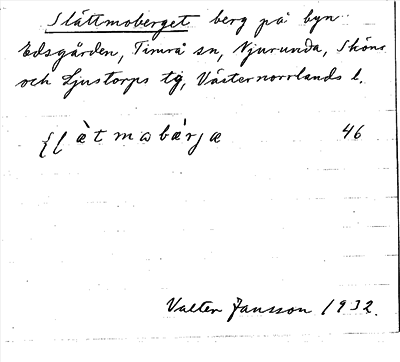 Slättmoberget berg på byn
Edsgården, Timrå sn, Njurunda, Sköns
och Ljustorps tg, Västernorrlands l.
46
Valter Jansson 1932.